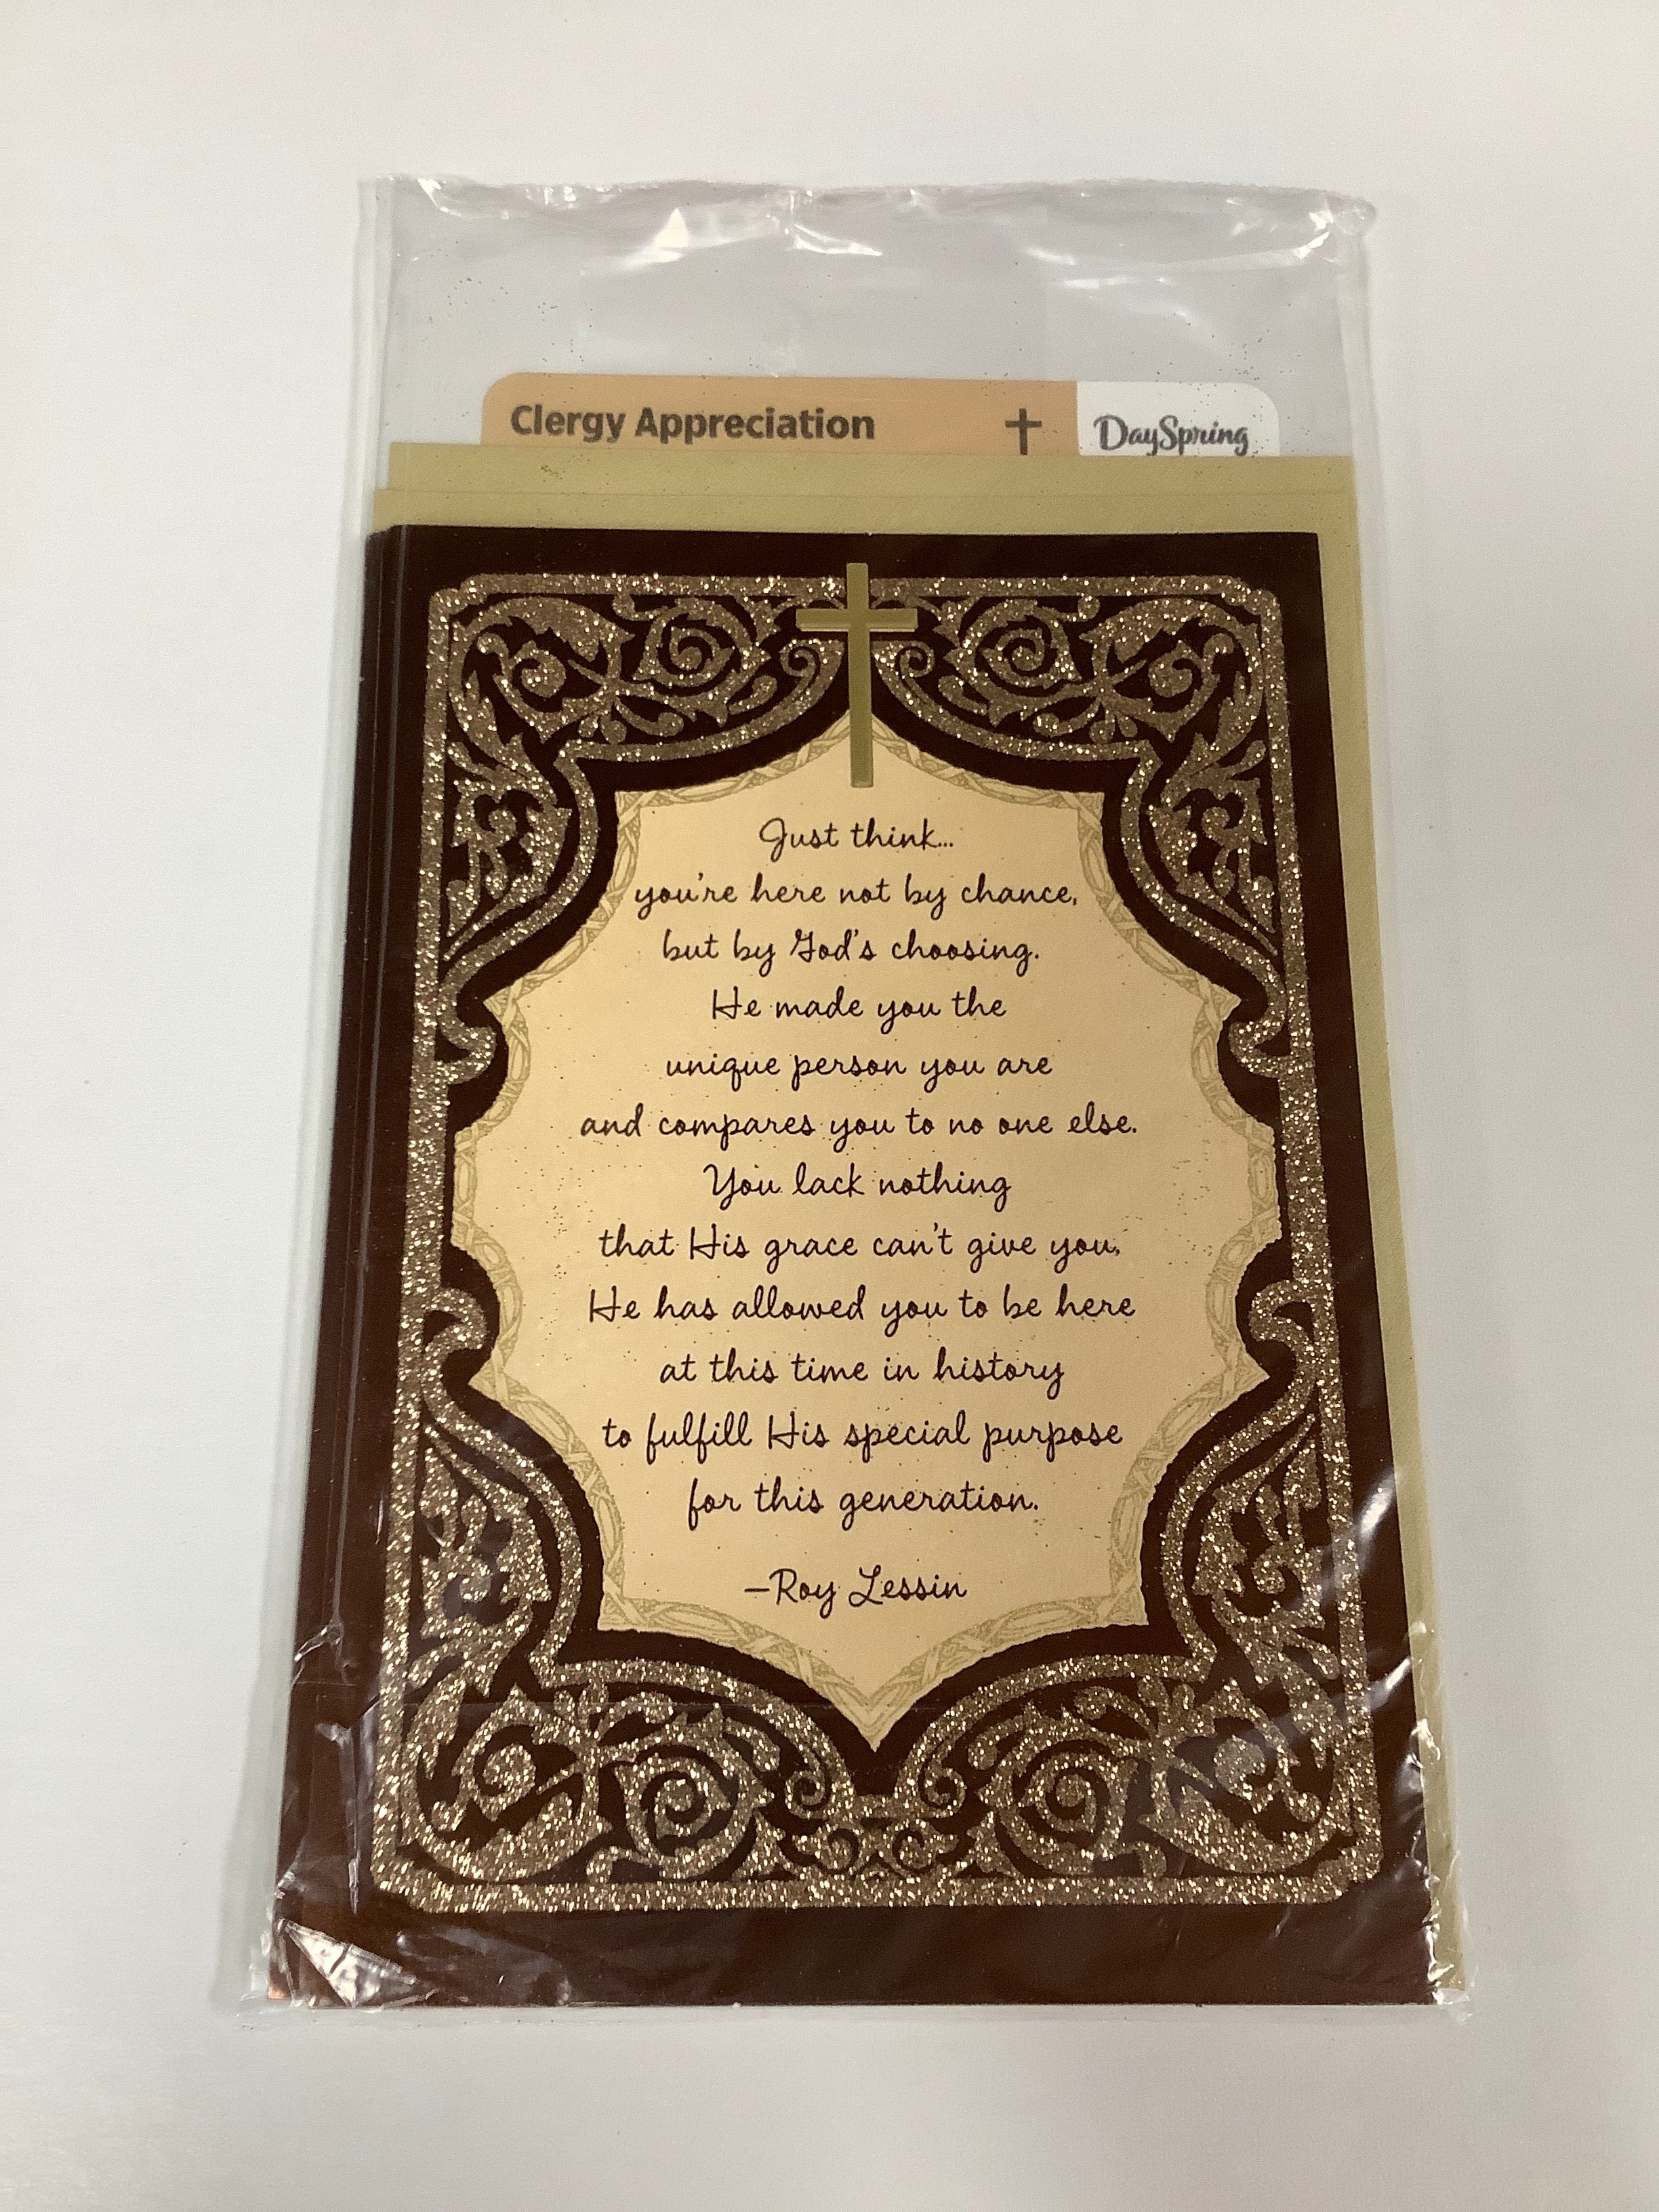 Clergy Appreciation
DaySpring
Just think...
you're here not by chance,
but by God's choosing.
He made you the
unique person you are
and compares you to no one else.
You lack nothing
that His grace can't give you.
He has allowed you to be here
at this time in history
to fulfill His special purpose
for this generation.
—Roy Lessin